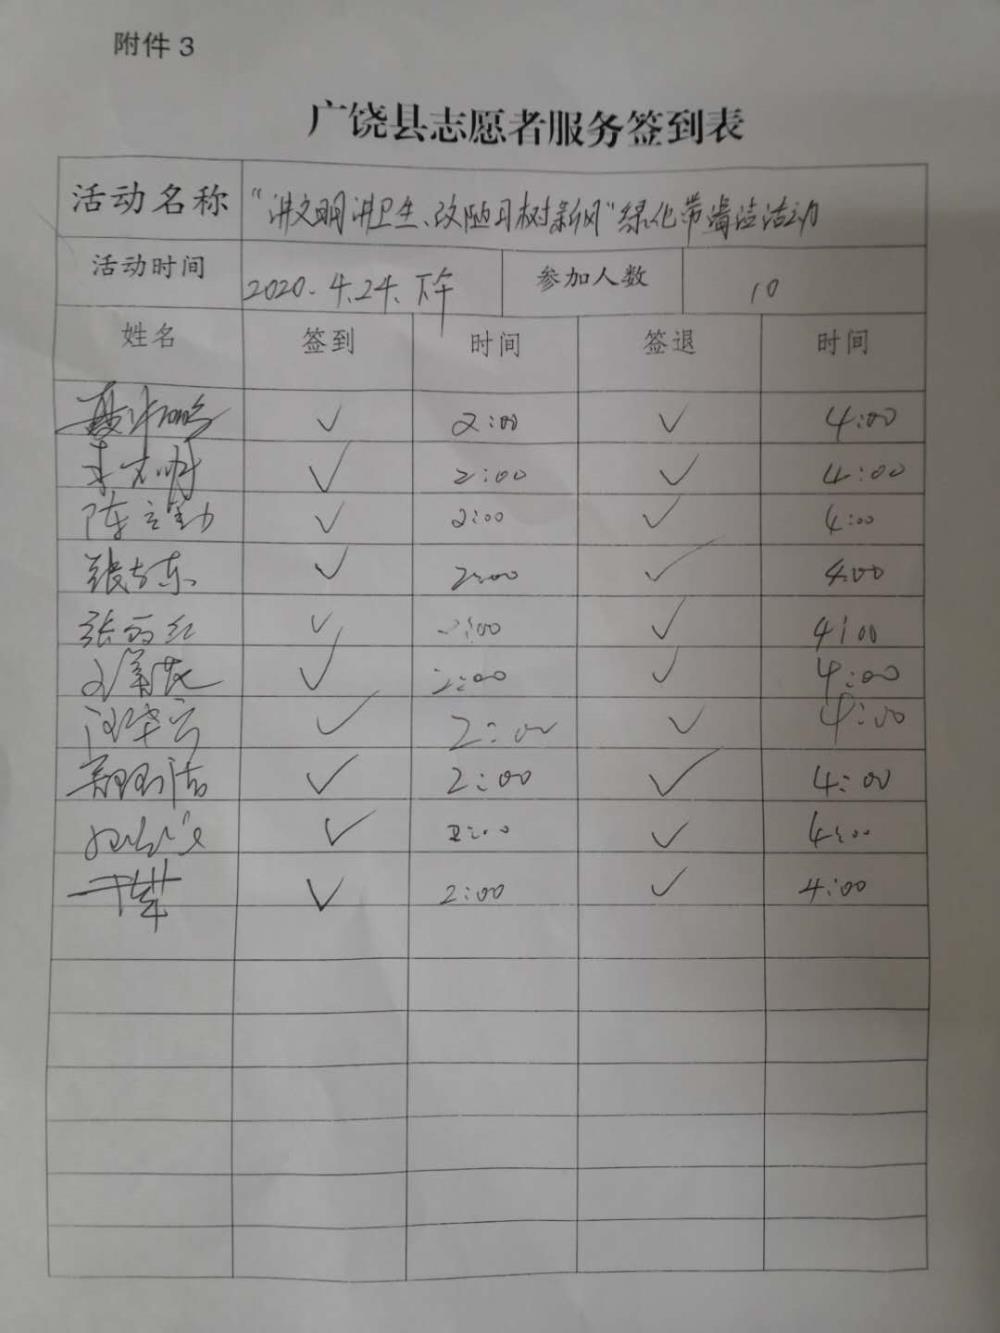 附件 3
广饶县志愿者服务签到表
活动名称 "讲文明讲卫生、改陋习树新风"绿化带清洁活动
活动时间 2020.4.24.下午 参加人数 10
姓名 签到 时间 签退 时间
✓ 2:00 ✓ 4:00
✓ 2:00 ✓ 4:00
陈立勤 ✓ 2:00 ✓ 4:00
张方东 ✓ 2:00 ✓ 4:00
张丽红 ✓ 2:00 ✓ 4:00
✓ 2:00 ✓ 4:00
✓ 2:00 ✓ 4:00
✓ 2:00 ✓ 4:00
✓ 2:00 ✓ 4:00
✓ 2:00 ✓ 4:00